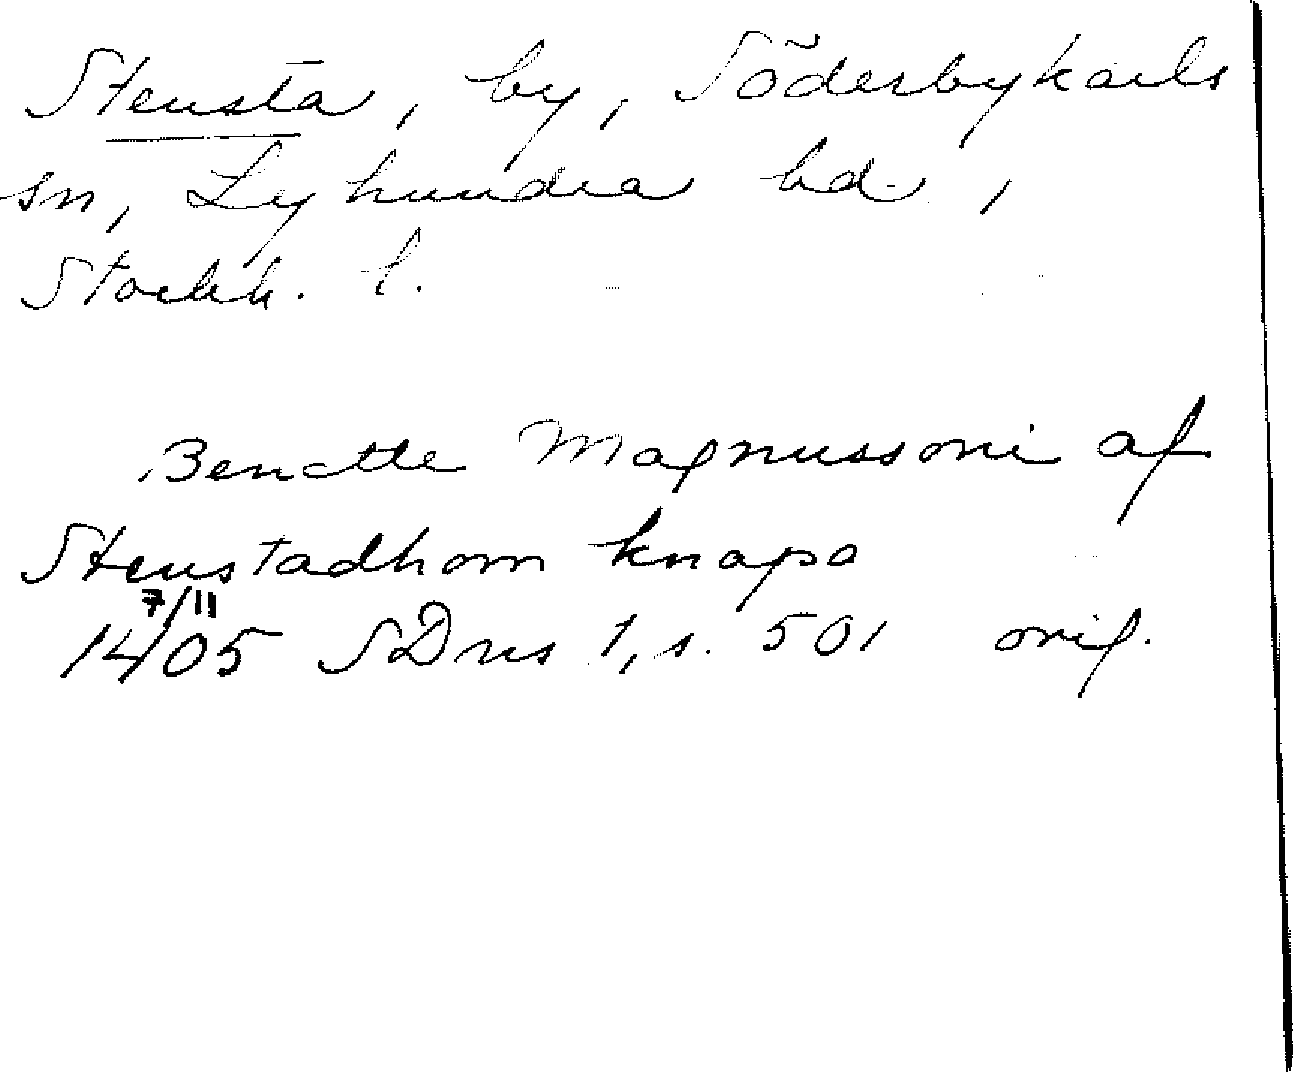 Stensta, by, Söderbykarls
sn, Lyhundra hd,
Stockh. l.
Benctte Magnussone af
Stenstadhom knapa
7/11
1405 SDns 1, s. 501 orig.